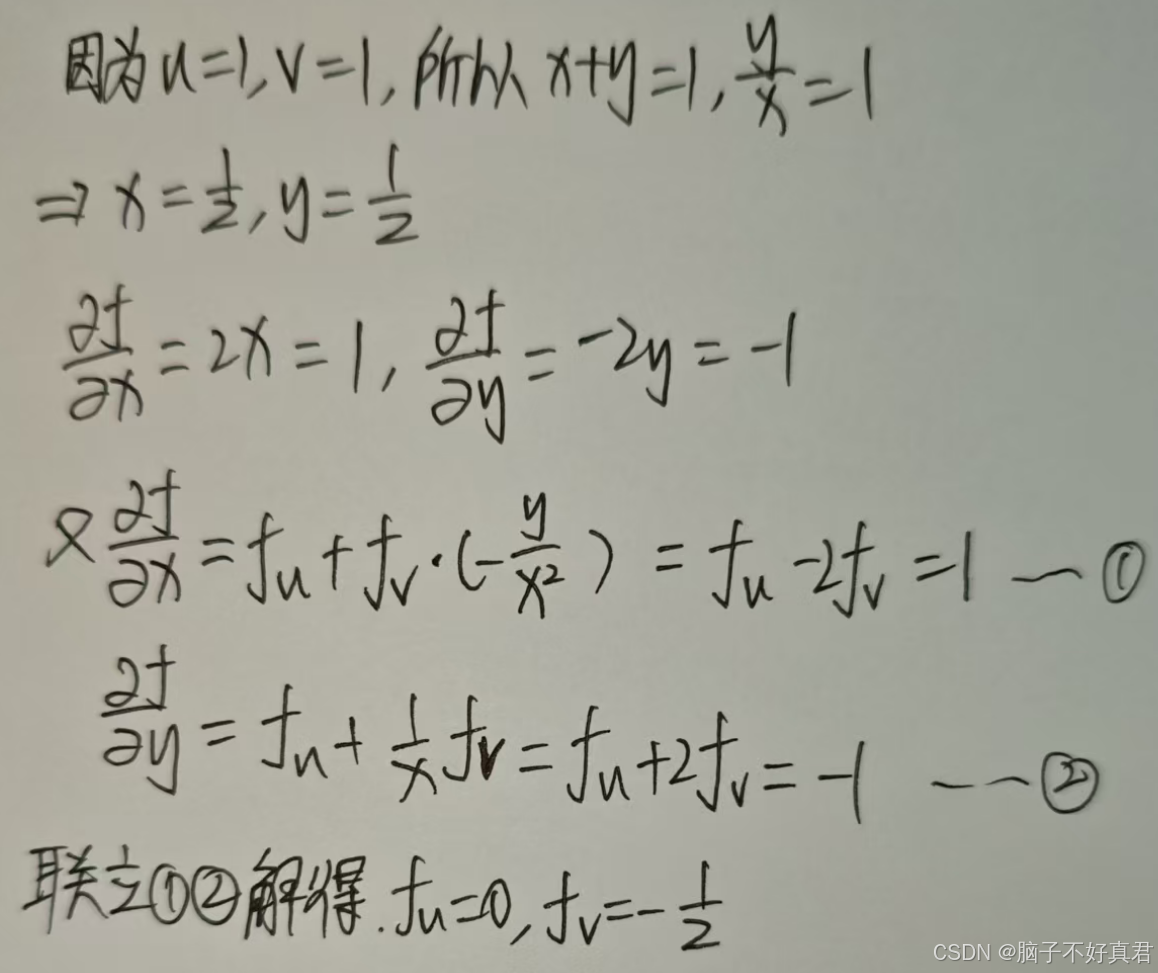 因为u=1,v=1,所以x+y=1,y/x=1
⇒x=1/2,y=1/2
∂f/∂x=2x=1,∂f/∂y=-2y=-1
又∂f/∂x=fu+fv·(-y/x²)=fu-2fv=1 — ①
∂f/∂y=fu+1/x fv=fu+2fv=-1 —— ②
联立①②解得.fu=0,fv=-1/2
CSDN @脑子不好真君